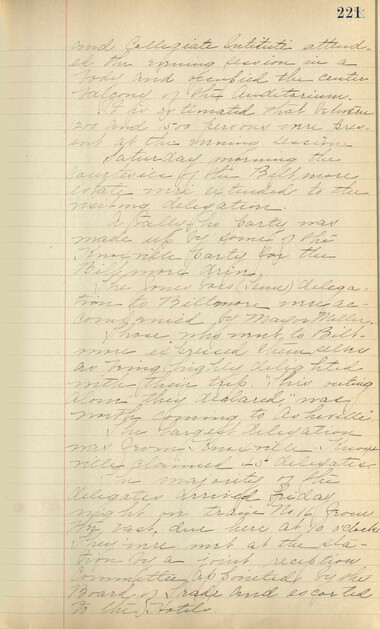 221
and Collegiate Institute attend-
ed the evening session in a
body and occupied the center
balcony of the Auditorium.
It is estimated that between
200 and 500 persons were pres-
ent at the evening session
Saturday morning the
courtesies of the Biltmore
estate were extended to the
visiting delegation.
A Tally-ho party was
made up by some of the
Knoxville party for the
Biltmore drive,
The Jonesboro (Tenn) delega-
tion to Biltmore were ac-
companied by Mayor Miller.
Those who went to Bilt-
more expressed themselves
as being highly delighted
with their trip. "This outing
alone they declared," was
worth coming to Asheville."
The largest delegation
was from Knoxville. Knox-
ville claimed delegates.
The majority of the
delegates arrived Friday
night on train No 16 from
the east, due here at 10 o'clock
They were met at the sta-
tion by a joint reception
Committee appointed by the
Board of Trade and escorted
to the Hotels.